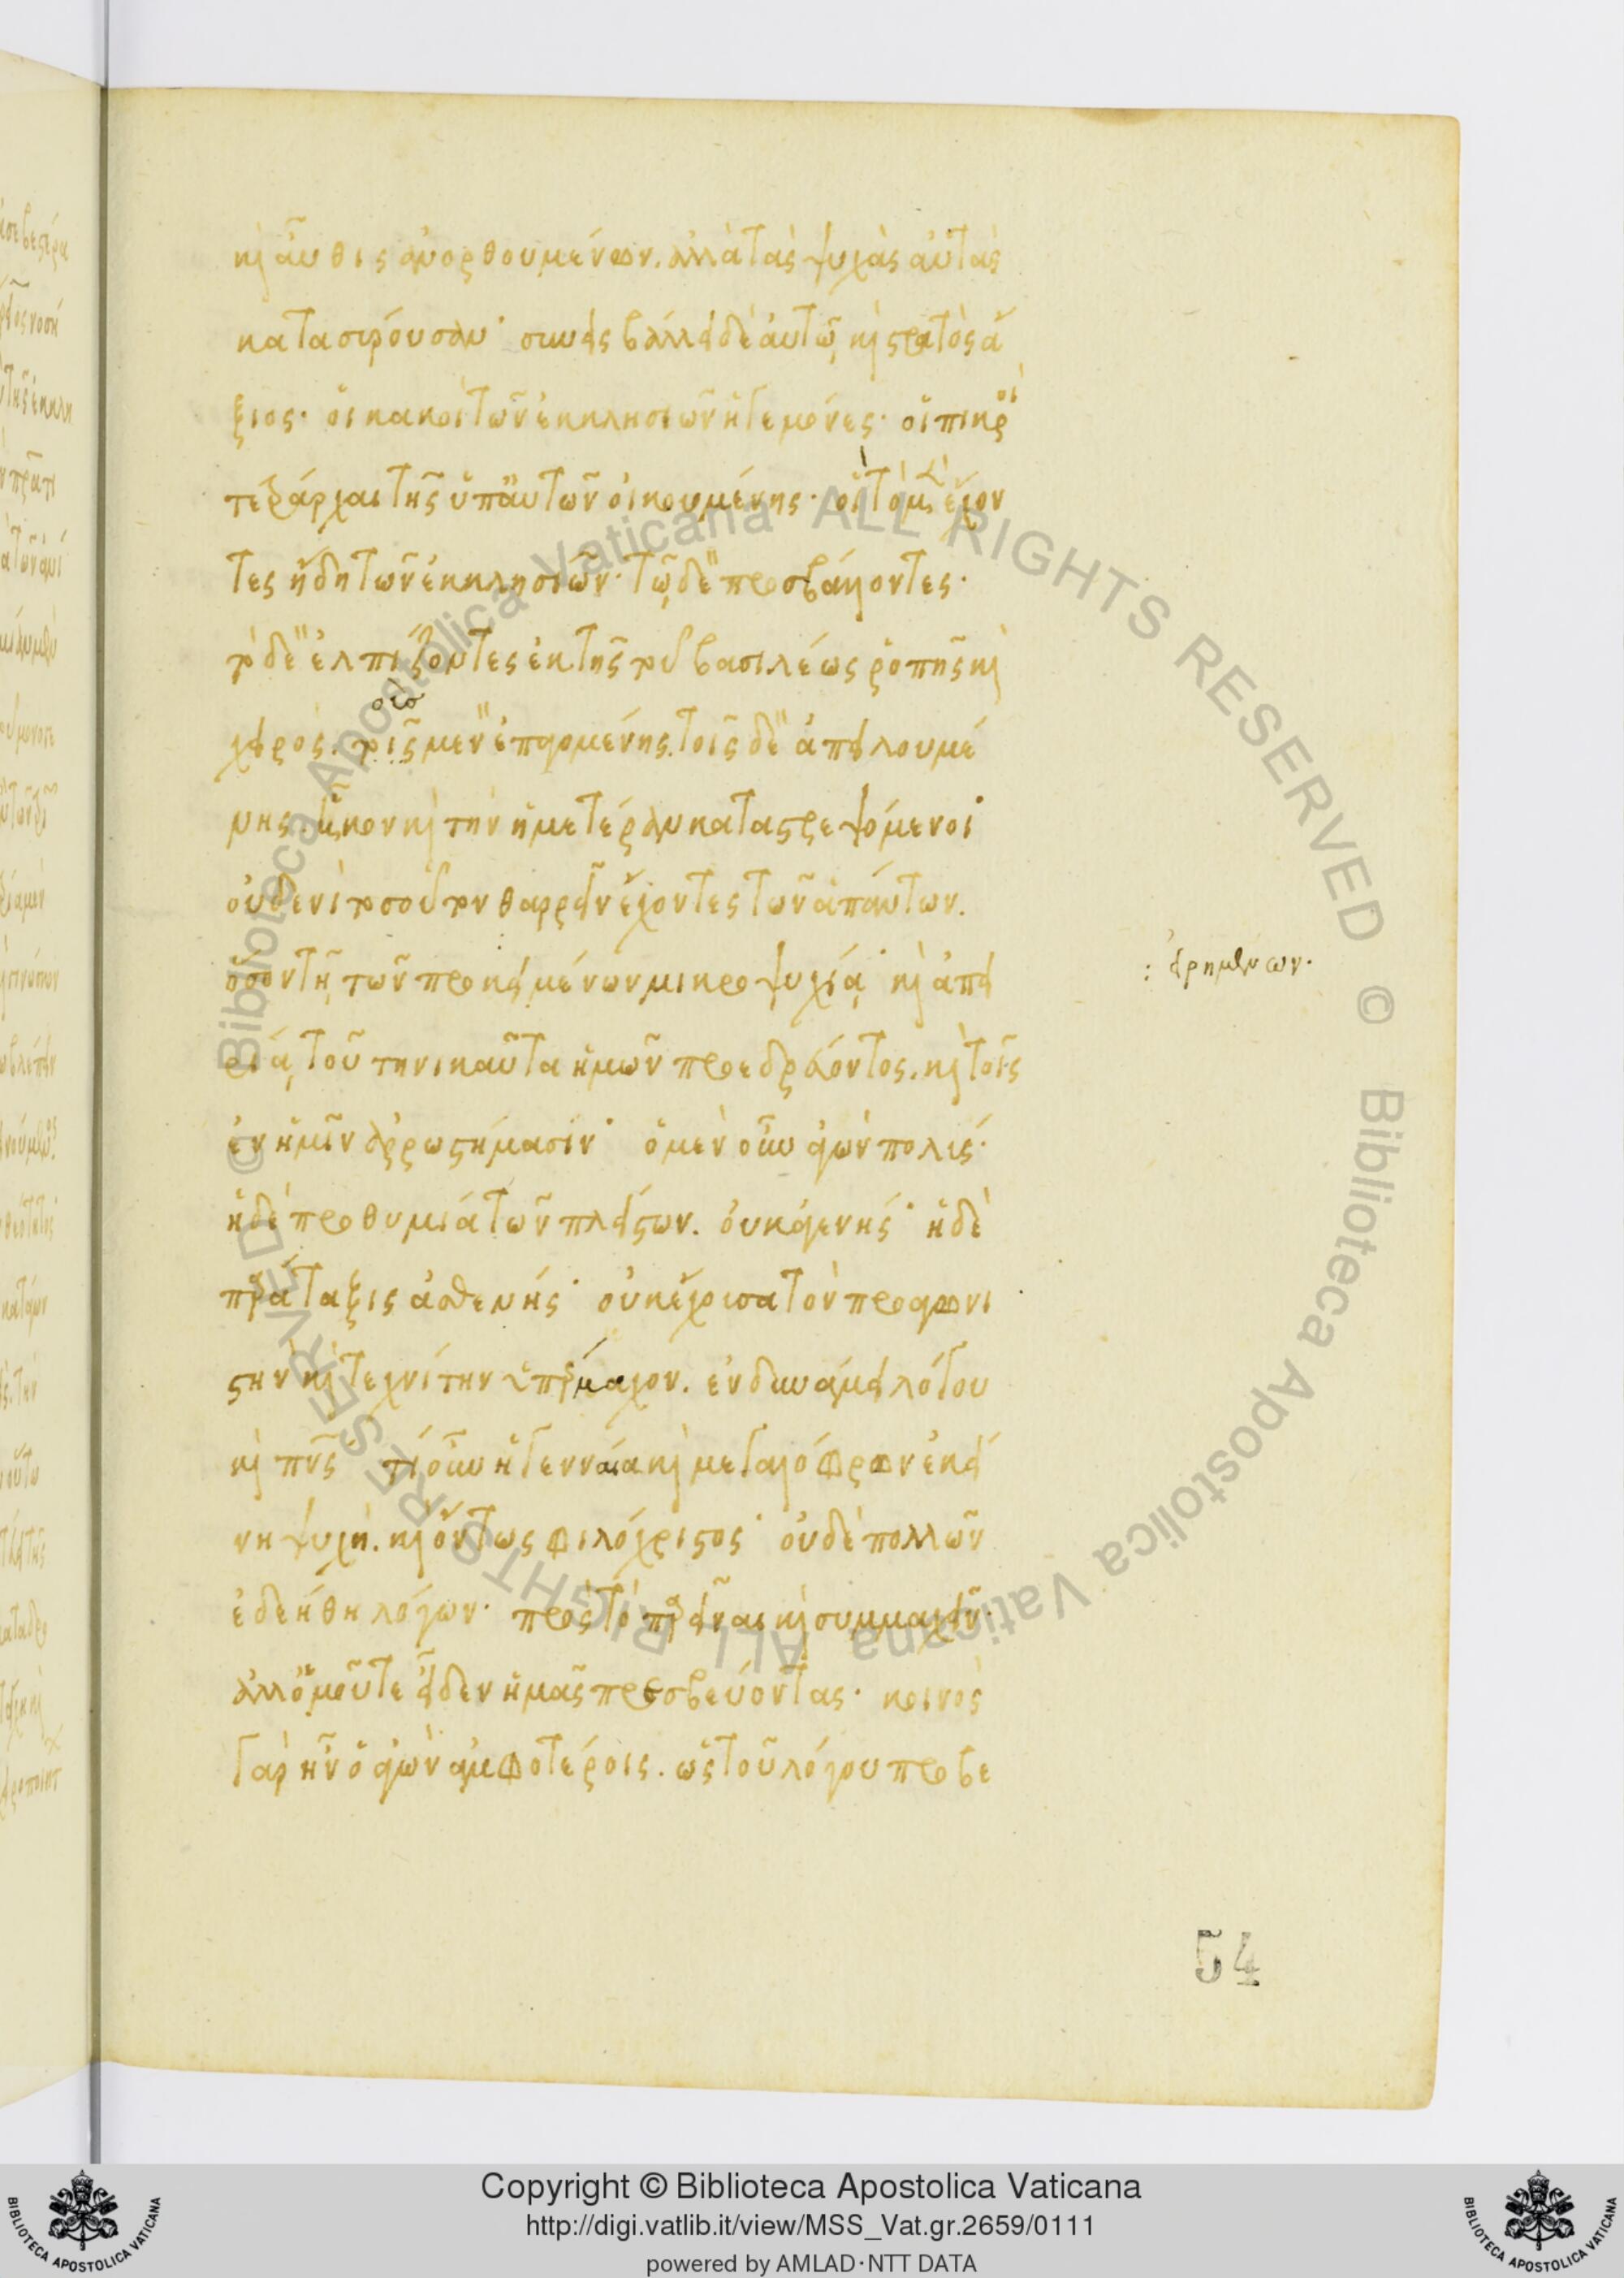 καὶ αὖθις ἀνορθουμένων. ἀλλὰ τὰς ψυχὰς αὐτὰς
κατασύρουσαν· συνεισβάλλει δὲ αὐτῷ καὶ στρατὸς ἄ
ξιος· οἱ κακοὶ τῶν ἐκκλησιῶν ἡγεμόνες· οἱ πικροὶ
τετράρχαι τῆς ὑπ' αὐτῶν οἰκουμένης· οἳ τὸ μὲν ἔχον
τες ἤδη τῶν ἐκκλησιῶν· τῷ δὲ προσβάλλοντες·
τὸ δὲ ἐλπίζοντες ἐκ τῆς τοῦ βασιλέως ῥοπῆς καὶ
χειρὸς. τοῖς μὲν ἐπαγομένης. τοῖς δὲ ἀπειλουμέ
οἷσ
νης. ἧκον καὶ τὴν ἡμετέραν καταστρεψόμενοι·
οὐδενὶ τοσοῦτον θαρρεῖν ἔχοντες τῶν ἁπάντων.
ὅσον τῇ τῶν προκειμένων μικροψυχίᾳ· καὶ ἀπει
: εἰρημένων.
ρίᾳ τοῦ τηνικαῦτα ἡμῶν προεδρεύοντος. καὶ τοῖς
ἐν ἡμῖν ἀρρωστήμασιν· ὁ μὲν οὖν ἀγὼν πολὺς·
ἡ δὲ προθυμία τῶν πλείστων. οὐκ ἀγενής· ἡ δὲ
παράταξις ἀσθενής· οὐκ ἔχουσα τὸν προαγωνι
στὴν καὶ τεχνίτην ὑπέρμαχον. ἐν δυνάμει λόγου
καὶ πνς· τί οὖν ἡ γενναία καὶ μεγαλόφρων ἐκεί
νη ψυχὴ. καὶ ὄντως φιλόχριστος· οὐδὲ πολλῶν
ἐδεήθη λόγων· πρὸς τὸ παρεῖναι καὶ συμμαχεῖν·
ἀλλ' ὁμοῦ τε εἶδεν ἡμᾶς πρεσβεύοντας· κοινὸς
γὰρ ἦν ὁ ἀγὼν ἀμφοτέροις. ὡς τοῦ λόγου προβε
54
Copyright © Biblioteca Apostolica Vaticana
http://digi.vatlib.it/view/MSS_Vat.gr.2659/0111
powered by AMLAD·NTT DATA
BIBLIOTECA APOSTOLICA VATICANA
BIBLIOTECA APOSTOLICA VATICANA
© Biblioteca Apostolica Vaticana ALL RIGHTS RESERVED © Biblioteca Apostolica Vaticana ALL RIGHTS RESERVED